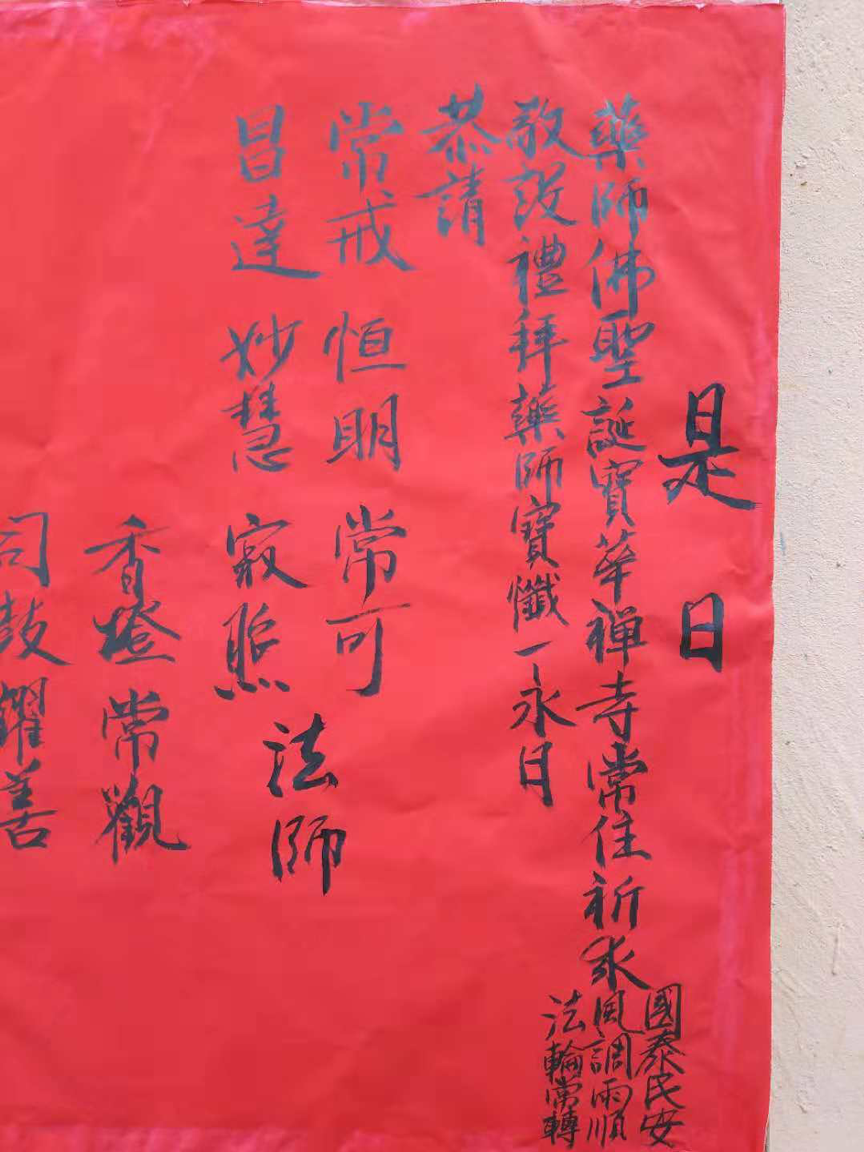 是日
藥師佛聖誕寶華禪寺常住祈求
國泰民安
風調雨順
法輪常轉
敬設禮拜藥師寶懺一永日
恭請
常戒 恒明 常可
昌達 妙慧 寂照
法師
香燈常觀
司鼓耀善